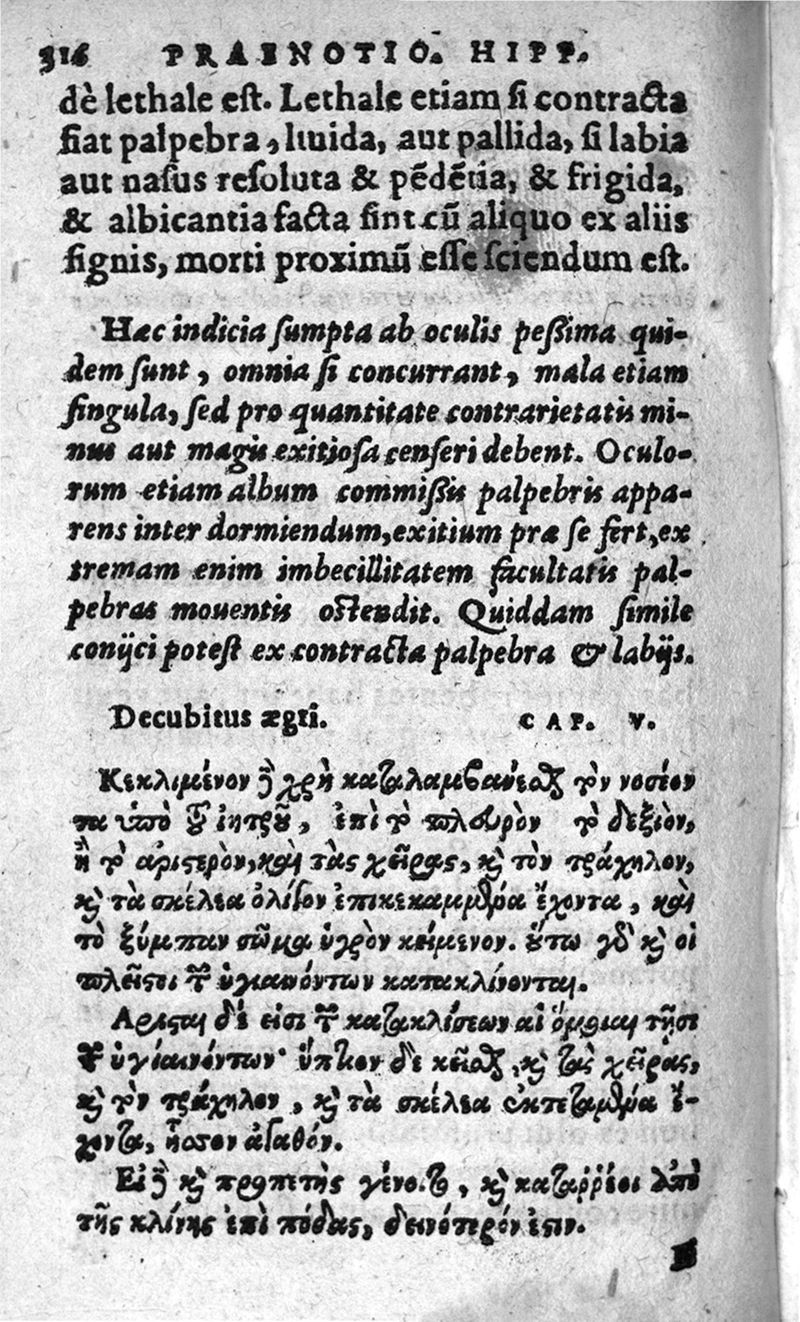 316 PRAENOTIO. HIPP.
dè lethale eſt. Lethale etiam ſi contracta
fiat palpebra, liuida, aut pallida, ſi labia
aut naſus reſoluta & pēdētia, & frigida,
& albicantia facta ſint cū aliquo ex aliis
ſignis, morti proximū eſſe ſciendum eſt.
Hæc indicia ſumpta ab oculis peßima qui-
dem ſunt, omnia ſi concurrant, mala etiam
ſingula, ſed pro quantitate contrarietatis mi-
nus aut magis exitioſa cenſeri debent. Oculo-
rum etiam album commißis palpebris appa-
rens inter dormiendum, exitium præ ſe fert, ex
tremam enim imbecillitatem facultatis pal-
pebras mouentis oſtendit. Quiddam ſimile
conijci poteſt ex contracta palpebra & labijs.
Decubitus ægri. CAP. V.
Κεκλιμένον ϳ χρὴ καταλαμβάνεσθαι τὸν νοσέον
τα ὑπὸ τοῦ ἰητροῦ, ἐπὶ τὸ πλευρὸν τὸ δεξιὸν,
ἢ τὸ ἀριστερὸν, καὶ τὰς χεῖρας, κὶ τὸν τράχηλον,
κὶ τὰ σκέλεα ὀλίγον ἐπικεκαμμένα ἔχοντα, καὶ
τὸ ξύμπαν σῶμα ὑγρὸν κείμενον. οὕτω γὸ κὶ οἱ
πλεῖστοι τῶν ὑγιαινόντων κατακλίνονται.
Αρισται δέ εἰσι τῶν κατακλίσεων αἱ ὅμοιαι τῇσι
τῶν ὑγιαινόντων· ὕπτιον δὲ κεῖσθαι, κὶ τὰς χεῖρας,
κὶ τὸν τράχηλον, κὶ τὰ σκέλεα ἐκτεταμένα ἔ-
χοντα, ἧσσον ἀγαθόν.
Εἰ ϳ κὶ προπετὴς γένοιτο, κὶ καταῤῥέοι ἀπὸ
τῆς κλίνης ἐπὶ πόδας, δεινότερόν ἐστιν.